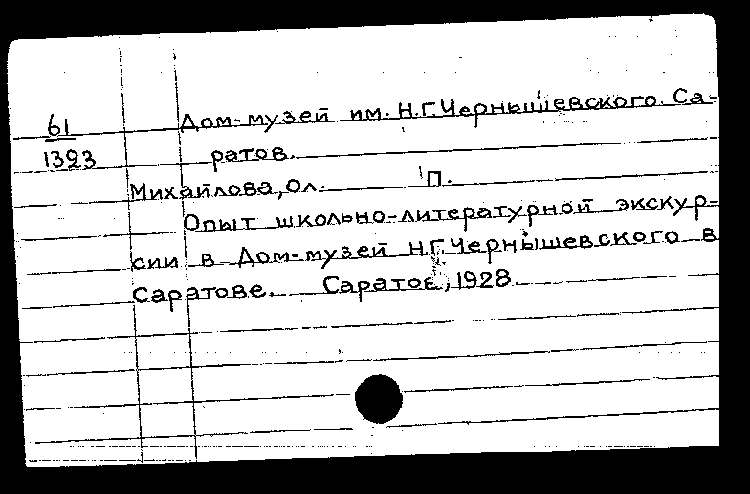 61 Дом-музей им. Н.Г.Чернышевского. Са-
1323 ратов.
Михайлова, Ол. П.
Опыт школьно-литературной экскур-
сии в Дом-музей Н.Г.Чернышевского в
Саратове. Саратов, 1928.